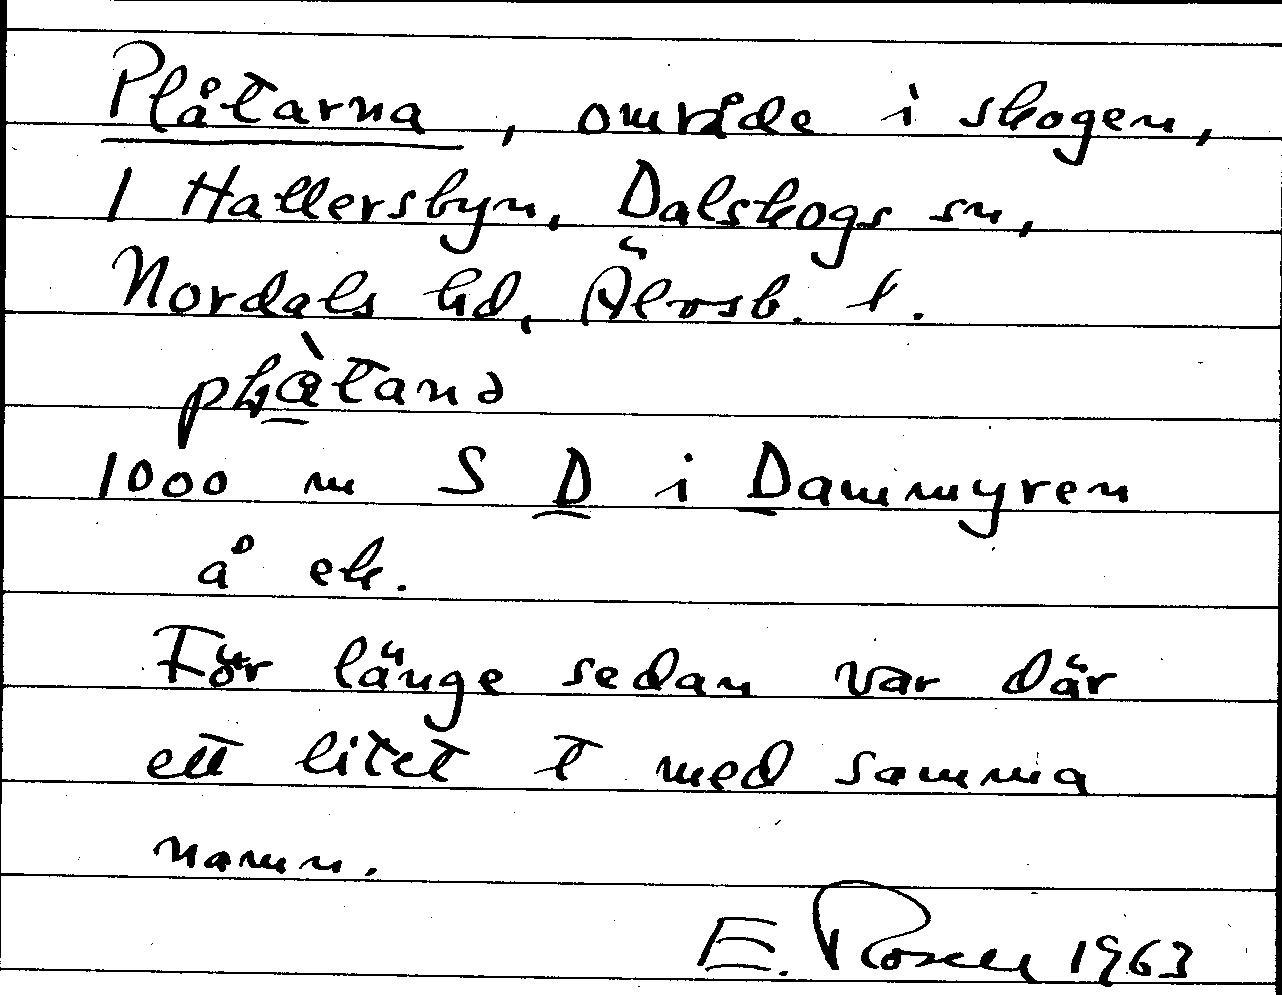 Plåtarna, område i skogen,
1 Hallersbyn, Dalskogs sn,
Nordals hd, Älvsb. l.
1000 m S D i Dammyren
å ek.
För länge sedan var där
ett litet t med samma
namn.
E. Rosell 1963